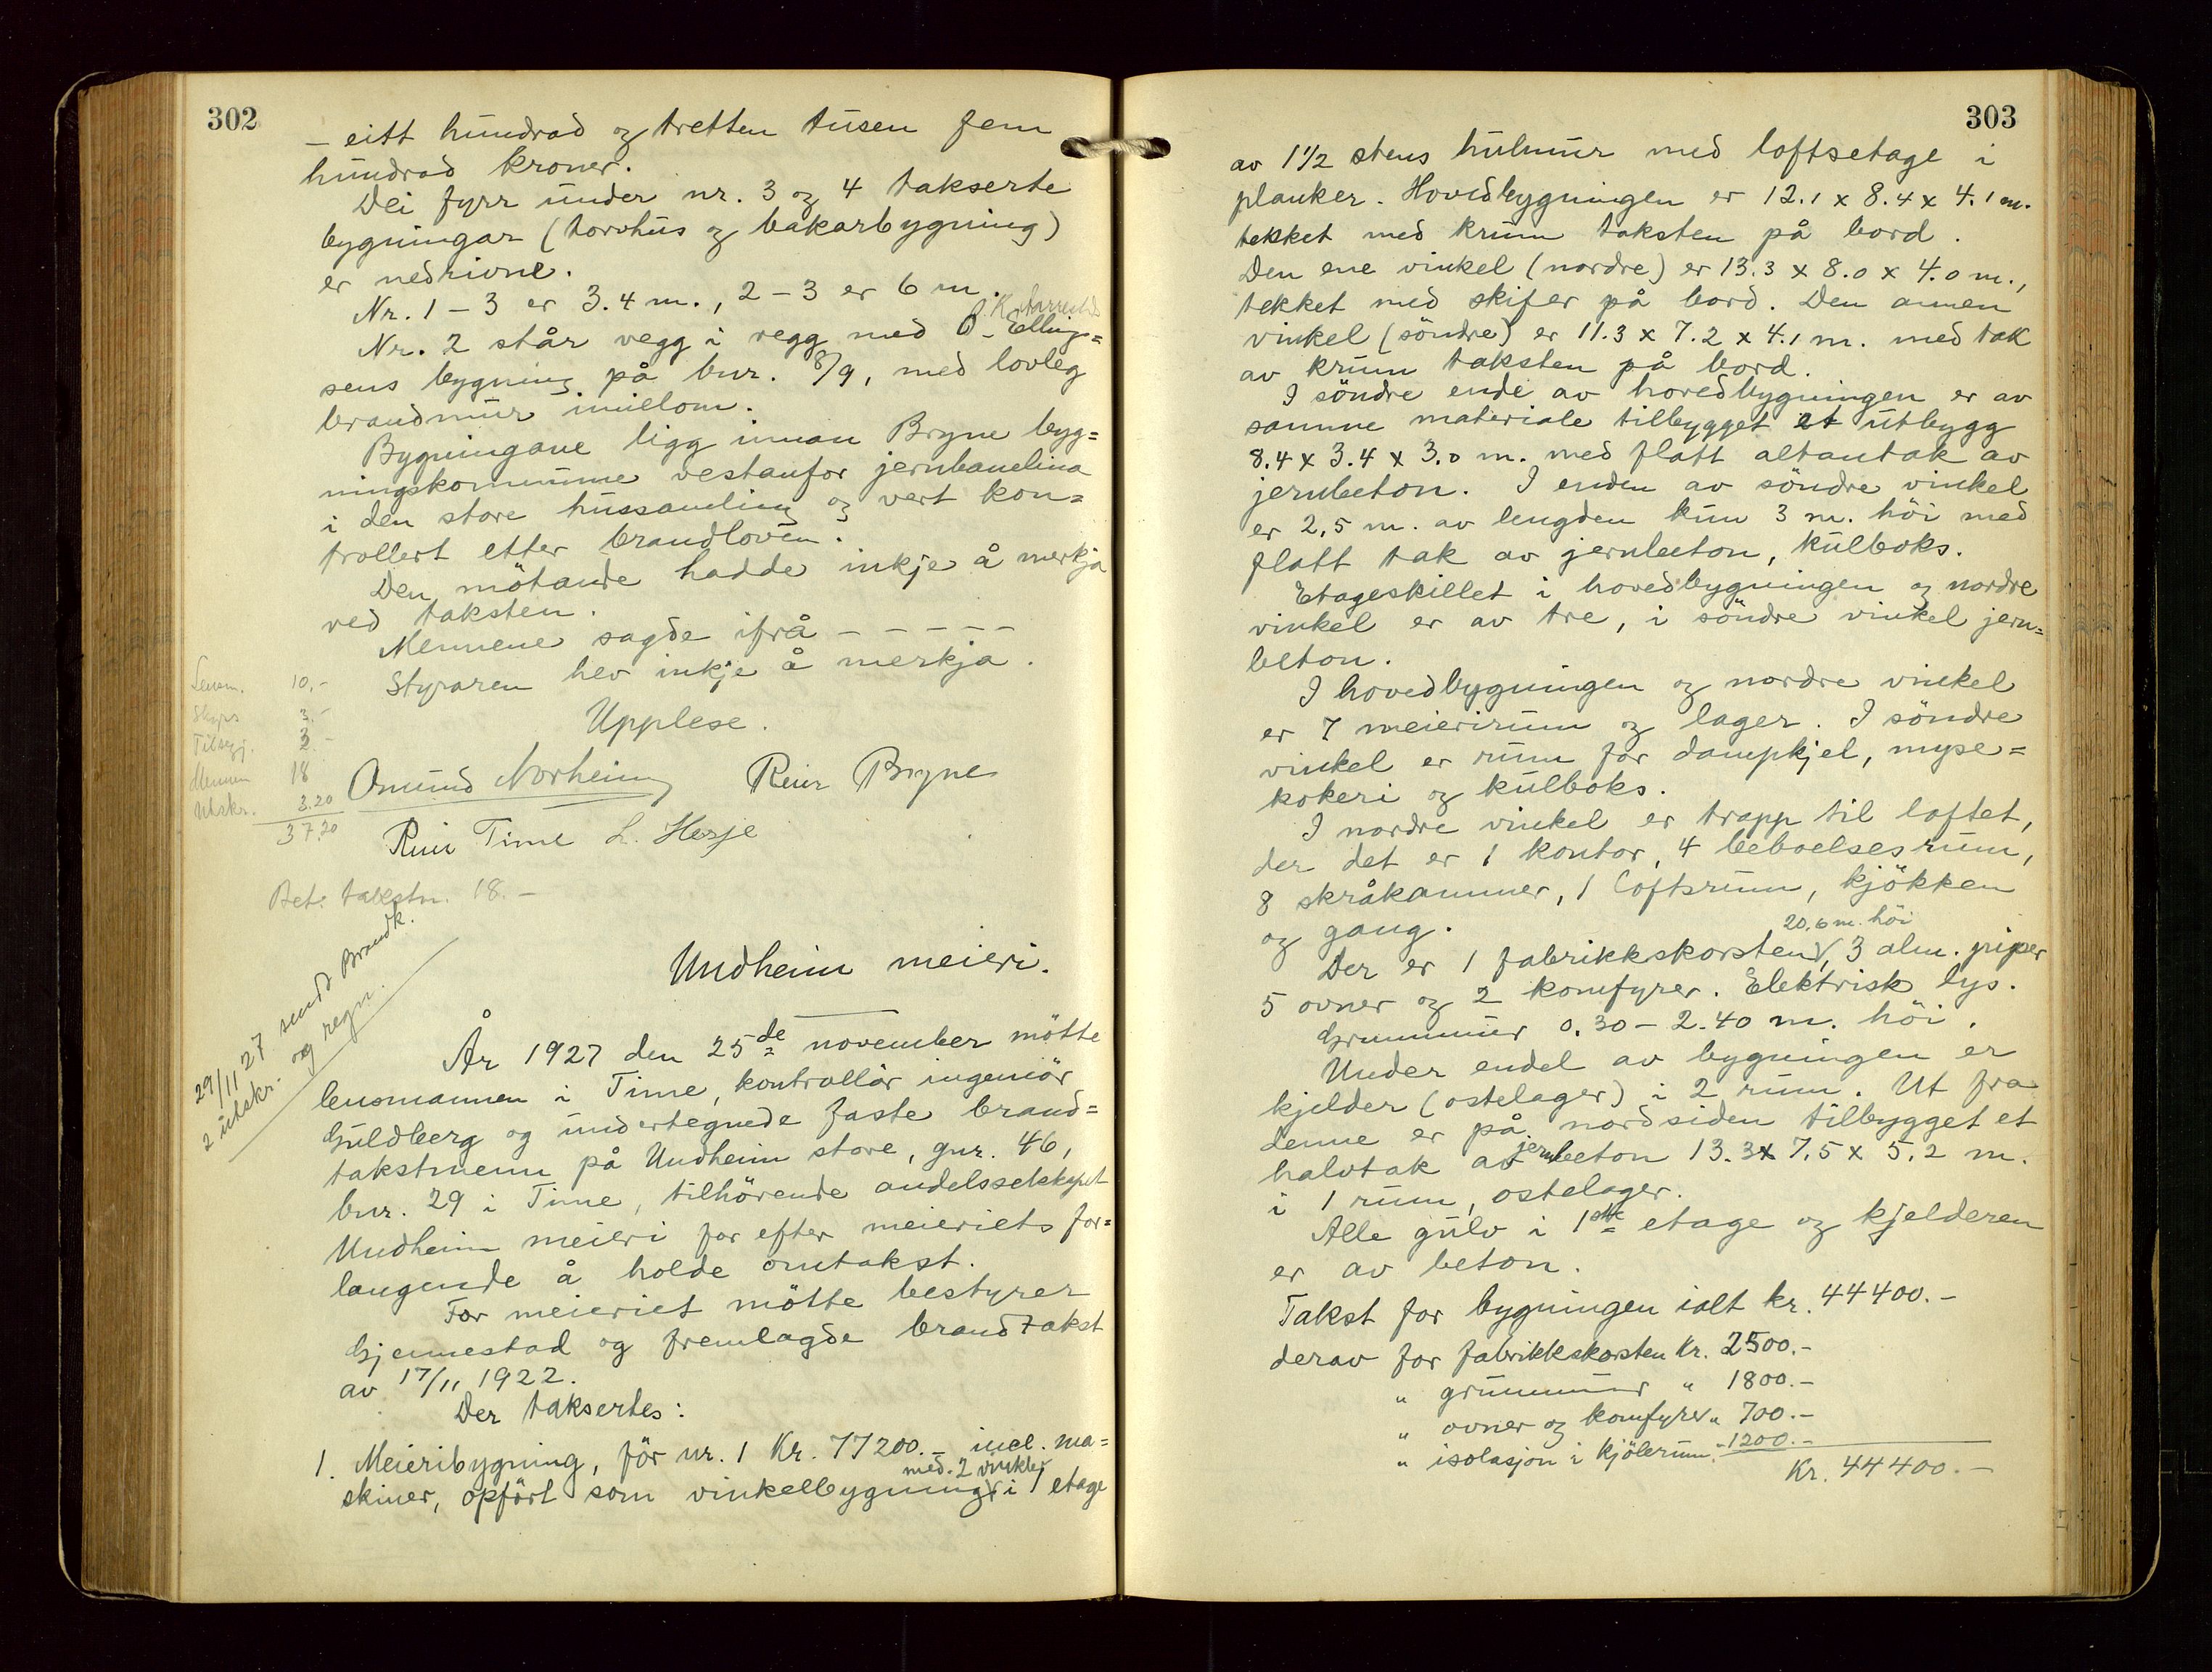 302
– eitt hundrad og tretten tusen fem
hundrad kroner.
Dei fyrr under nr. 3 og 4 takserte
bygningar (torvhus og bakarbygning)
er nedrivne.
Nr. 1 – 3 er 3.4 m., 2 – 3 er 6 m.
O. K.
Nr. 2 står vegg i vegg med O. Elling=
sens bygning på bnr. 8/9, med lovleg
brandmur imillom.
Bygningane ligg innan Bryne byg=
ningskommune vestanfor jernbanelina
i den store hussamling og vert kon=
trollert etter brandloven.
Den mötande hadde inkje å merkja
ved taksten.
Mennene sagde ifrå – – – – –
Styraren hev inkje å merkja.
Upplese.
Lensm. 10,-
Skyss 3.-
Tilsyj. 3.-
Mennen 18
Utskr. 3.20
37.20
Omund Norheim Reier Bryne
Reier Time L. Hesje
Bet. takstm. 18.-
29/11 27 sendt Brandk.
2 utskr. og regn.
Undheim meieri.
År 1927 den 25de november mötte
lensmannen i Time, kontrollör ingeniör
Guldberg og undertegnede faste brand=
takstmenn på Undheim store, gnr. 46,
bnr. 29 i Time, tilhörende andelsselskapet
Undheim meieri for efter meieriets for=
langende å holde omtakst.
For meieriet mötte bestyrer
Gjennestad og fremlagde brandtakst
av 17/11 1922.
Der taksertes:
1. Meieribygning, för nr. 1 Kr. 77200.- incl. ma=
med 2 vinkler
skiner, opfört som vinkelbygning i 1 etage
303
av 1 1/2 stens hulmur med loftsetage i
planker. Hovedbygningen er 12.1 x 8.4 x 4.1 m.
tekket med krum taksten på bord.
Den ene vinkel (nordre) er 13.3 x 8.0 x 4.0 m.,
tekket med skifer på bord. Den annen
vinkel (söndre) er 11.3 x 7.2 x 4.1 m. med tak
av krum taksten på bord.
I söndre ende av hovedbygningen er av
samme materiale tilbygget et utbygg
8.4 x 3.4 x 3.0 m. med flatt altantak av
jernbeton. I enden av söndre vinkel
er 2,5 m. av lengden kun 3 m. höi med
flatt tak av jernbeton, kulboks.
Etageskillet i hovedbygningen og nordre
vinkel er av tre, i söndre vinkel jern=
beton.
I hovedbygningen og nordre vinkel
er 7 meierirum og lager. I söndre
vinkel er rum for dampkjel, myse=
kokeri og kulboks.
I nordre vinkel er trapp til loftet,
der det er 1 kontor, 4 beboelsesrum,
8 skråkammer, 1 loftsrum, kjökken
og gang.
20,6 m. höi
Der er 1 fabrikkskorsten, 3 alm. piper
5 ovner og 2 komfyrer. Elektrisk lys.
Grunnmur 0.30 – 2.40 m. höi.
Under endel av bygningen er
kjelder (ostelager) i 2 rum. Ut fra
denne er på nordsiden tilbygget et
halvtak av jernbeton 13.3 x 7,5 x 5,2 m.
i 1 rum, ostelager.
Alle gulv i 1ste etage og kjelderen
er av beton.
Takst for bygningen ialt kr. 44400.-
derav for fabrikkskorsten Kr. 2500.-
" grunnmur " 1800.-
" ovner og komfyrer " 700.-
" isolasjon i kjölerum " 1200.-
Kr. 44400.-